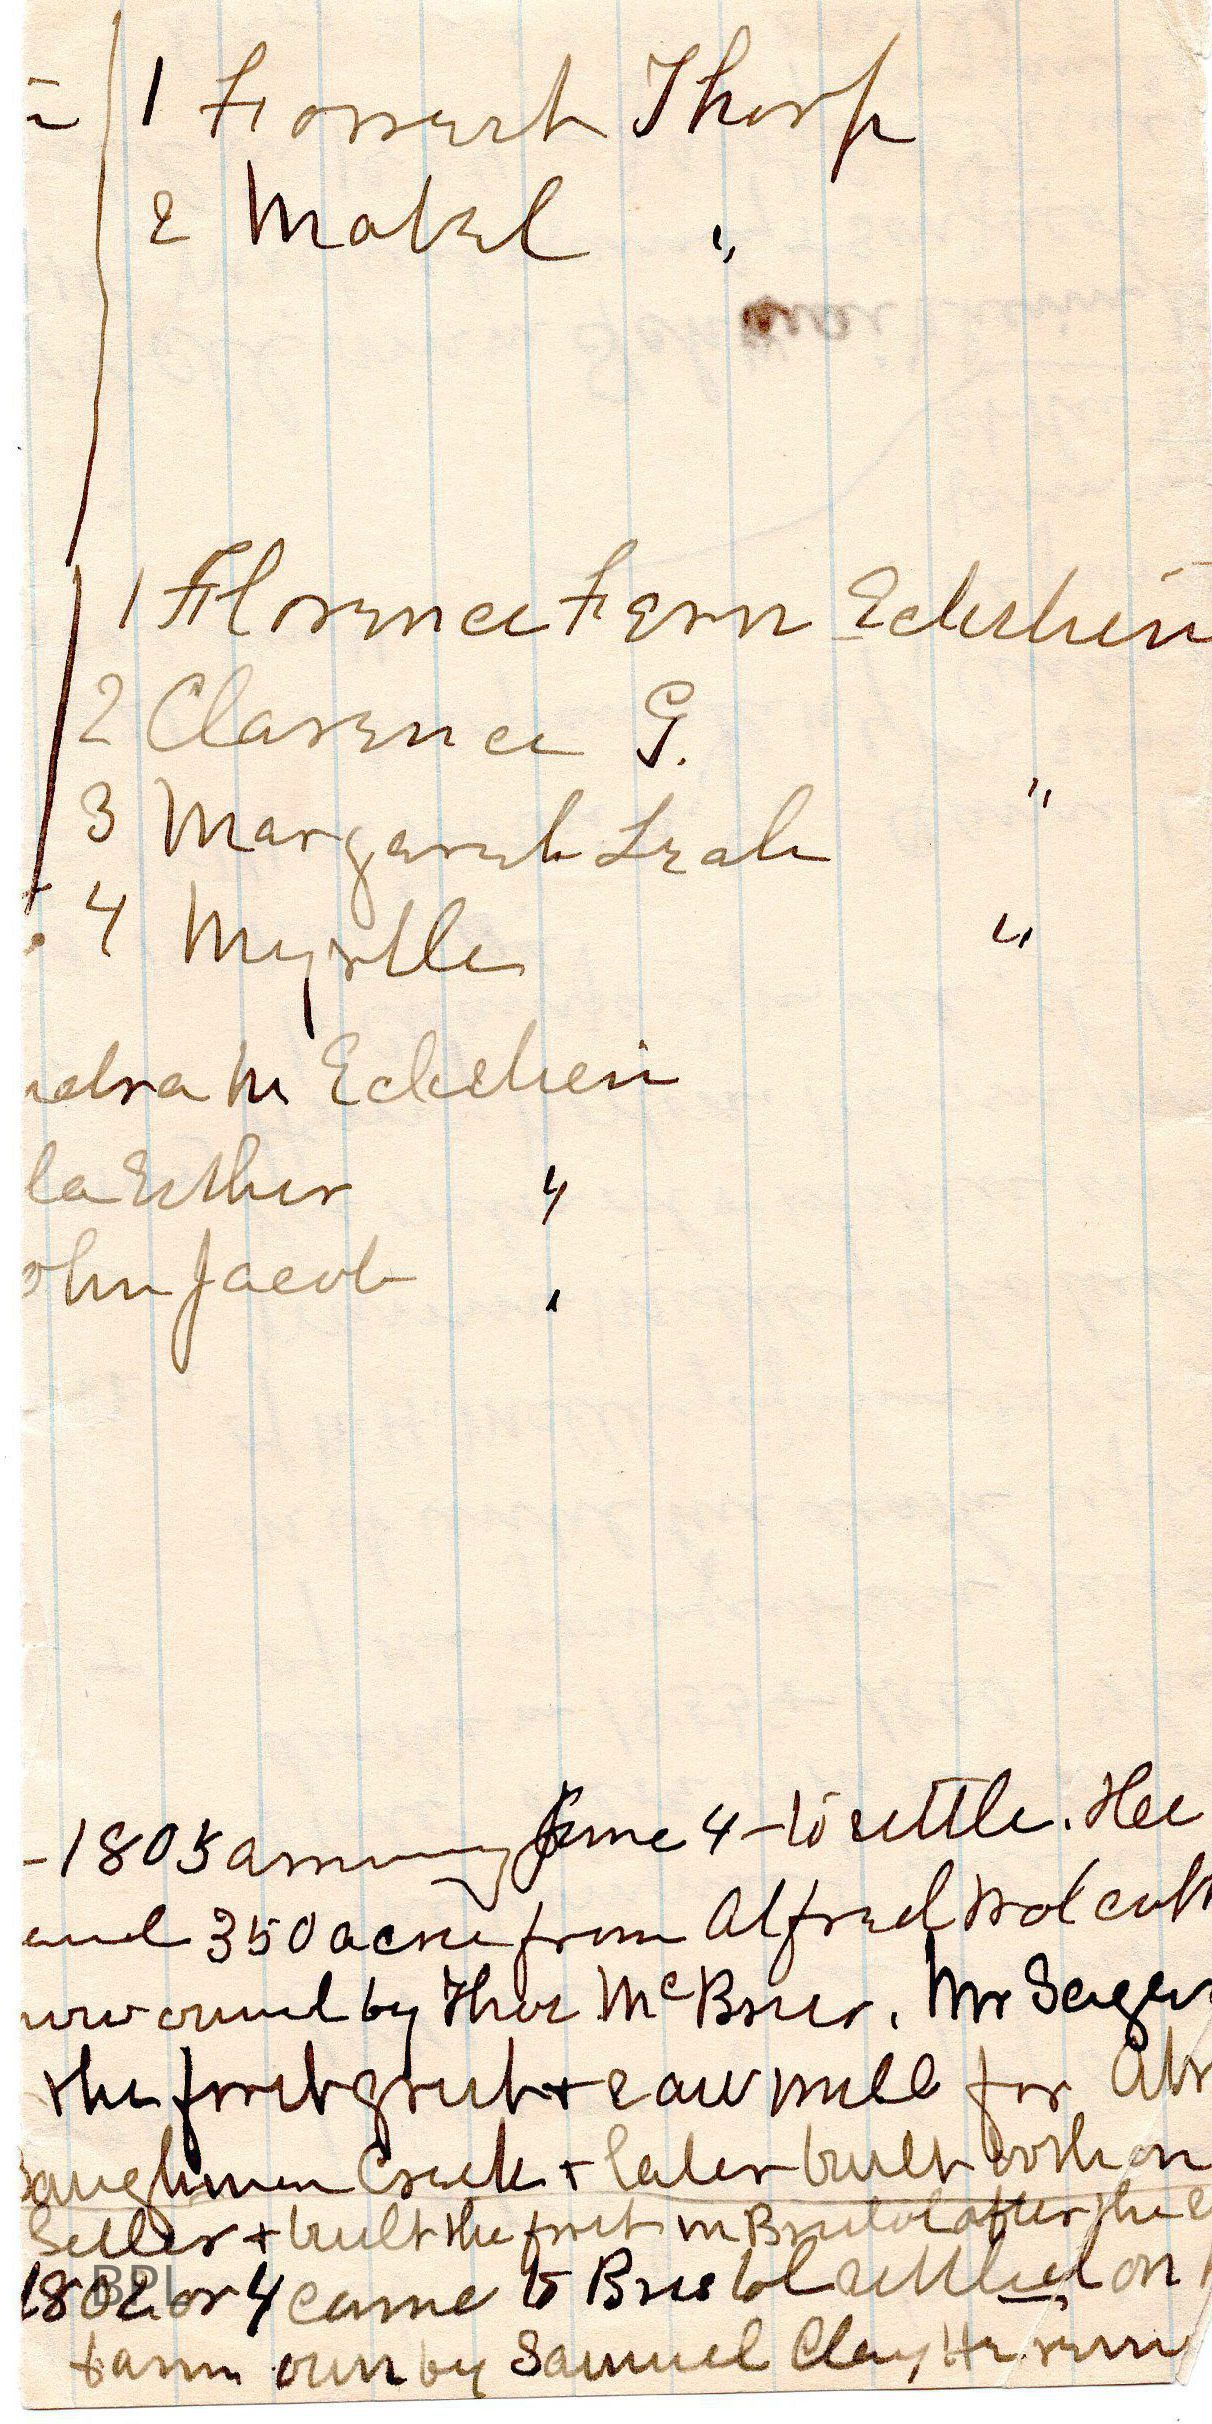 1 Forrest Thorp
2 Mabel "
1 Florence Fern Eckshin
2 Clarence G.
3 Margaret Leah "
4 Myrtle "
M Eckshin
Esther "
ohn Jacob "
-1805 June 4 - to settle. He
350 acres from Alfred Wolcott
owned by Thos McBrier. Mr Seger
the first grist + saw mill for Abr
aughman Creek + later built on
Setler + built the first in Bristol after the
1802 or 4 came to Bristol settled on
farm own by Samuel Clay He
BPL